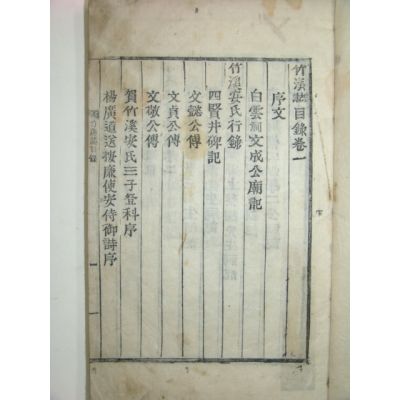 竹溪誌目錄卷一
序文
白雲洞文成公廟記
竹溪安氏行錄
四賢井碑記
文懿公傳
文貞公傳
文敬公傳
賀竹溪安氏三子登科序
楊廣道送按廉使安侍御詩序